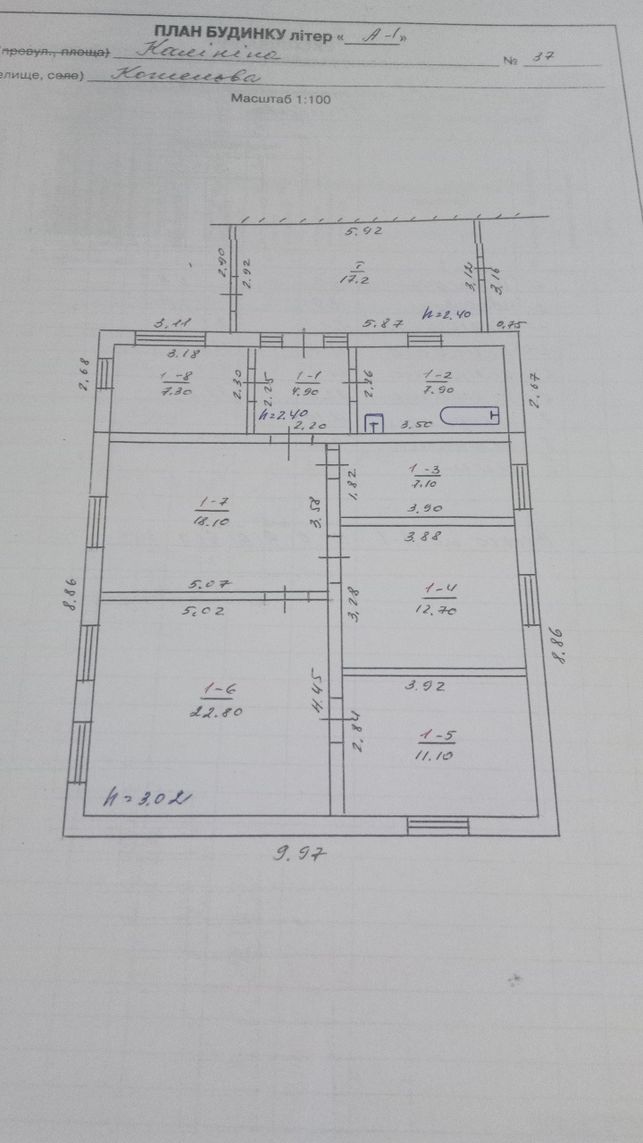 ПЛАН БУДИНКУ літер « А-І »
провул., площа) Калініна № 37
елище, село) Кошелева
Масштаб 1:100
5.92
2.90
2.92
I
17.2
3.12
3.16
h=2.40
3.11
5.87
0.75
3.18
2.68
1-8
7.30
2.30
2.25
1-1
4.90
h=2.40
2.20
2.26
1-2
7.90
3.50
2.67
1-7
18.10
3.58
1.82
1-3
7.10
3.90
3.88
5.07
5.02
8.86
3.28
1-4
12.70
8.86
1-6
22.80
4.45
3.92
2.84
1-5
11.10
h=3.02
9.97